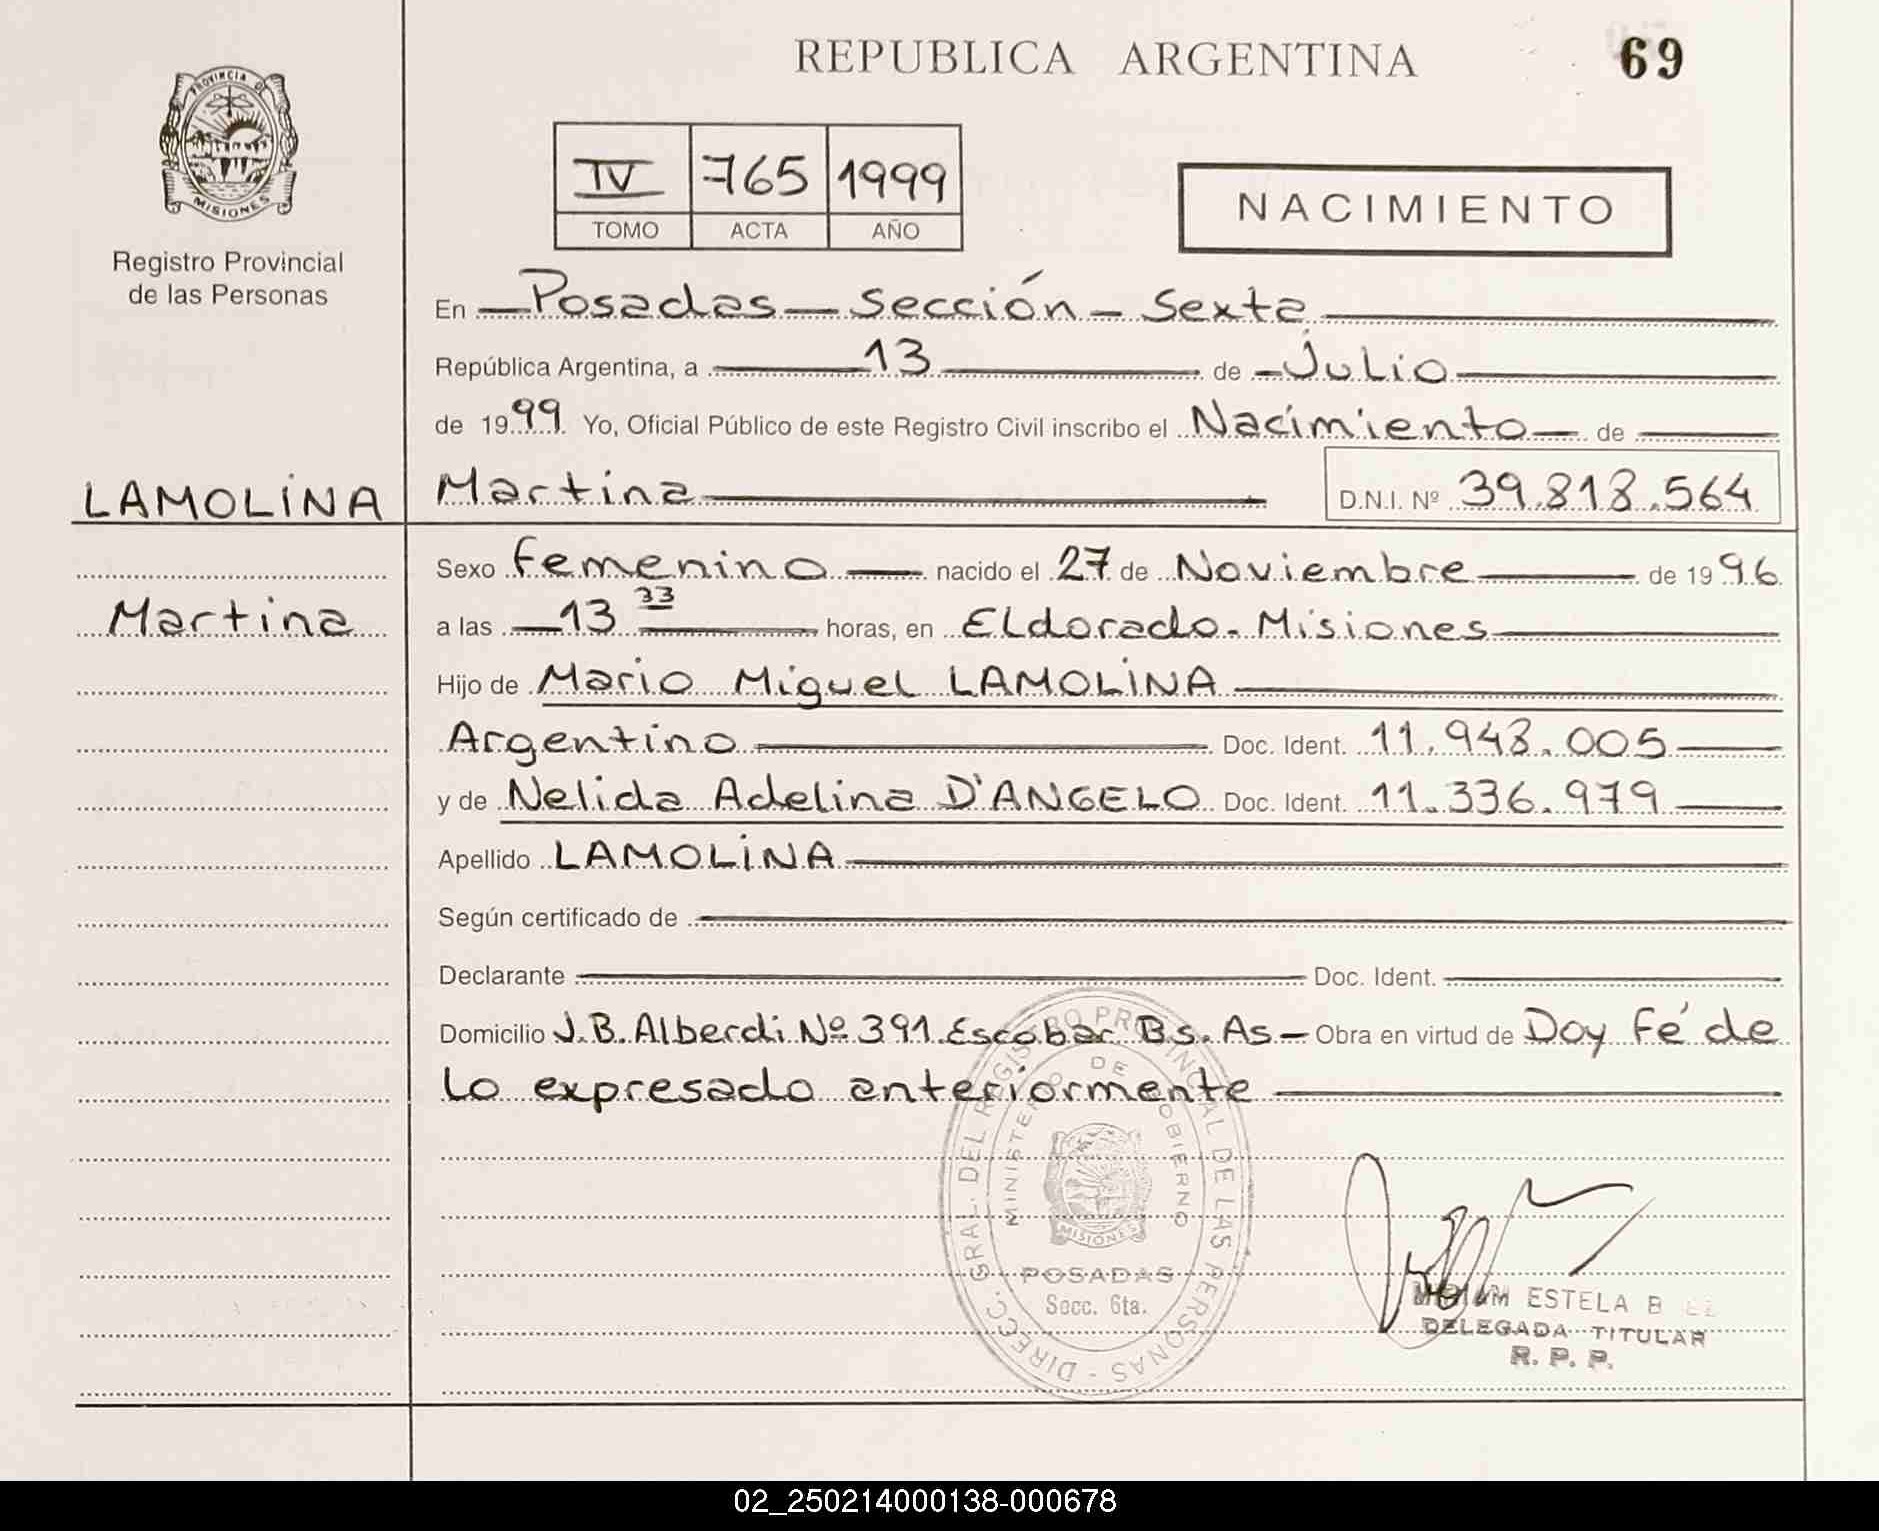 REPUBLICA ARGENTINA
69
PROVINCIA DE
MISIONES
Registro Provincial
de las Personas
IV 765 1999
TOMO ACTA AÑO
NACIMIENTO
En Posadas - Sección - Sexta
República Argentina, a 13 de Julio
de 1999 Yo, Oficial Público de este Registro Civil inscribo el Nacimiento de
LAMOLINA
Martina D.N.I. Nº 39.818.564
Sexo Femenino nacido el 27 de Noviembre de 1996
Martina
a las 13 33 horas, en Eldorado. Misiones
Hijo de Mario Miguel LAMOLINA
Argentino Doc. Ident. 11.943.005
y de Nelida Adelina D'ANGELO Doc. Ident. 11.336.979
Apellido LAMOLINA
Según certificado de
Declarante Doc. Ident.
Domicilio J.B. Alberdi Nº 391 Escobar Bs. As - Obra en virtud de Doy Fé de
lo expresado anteriormente
DIRECC. GRAL. DEL REGISTRO PROVINCIAL DE LAS PERSONAS -
MINISTERIO DE GOBIERNO
MISIONES
POSADAS
Secc. 6ta.
MIRIAM ESTELA
DELEGADA TITULAR
R. P. P.
02_250214000138-000678